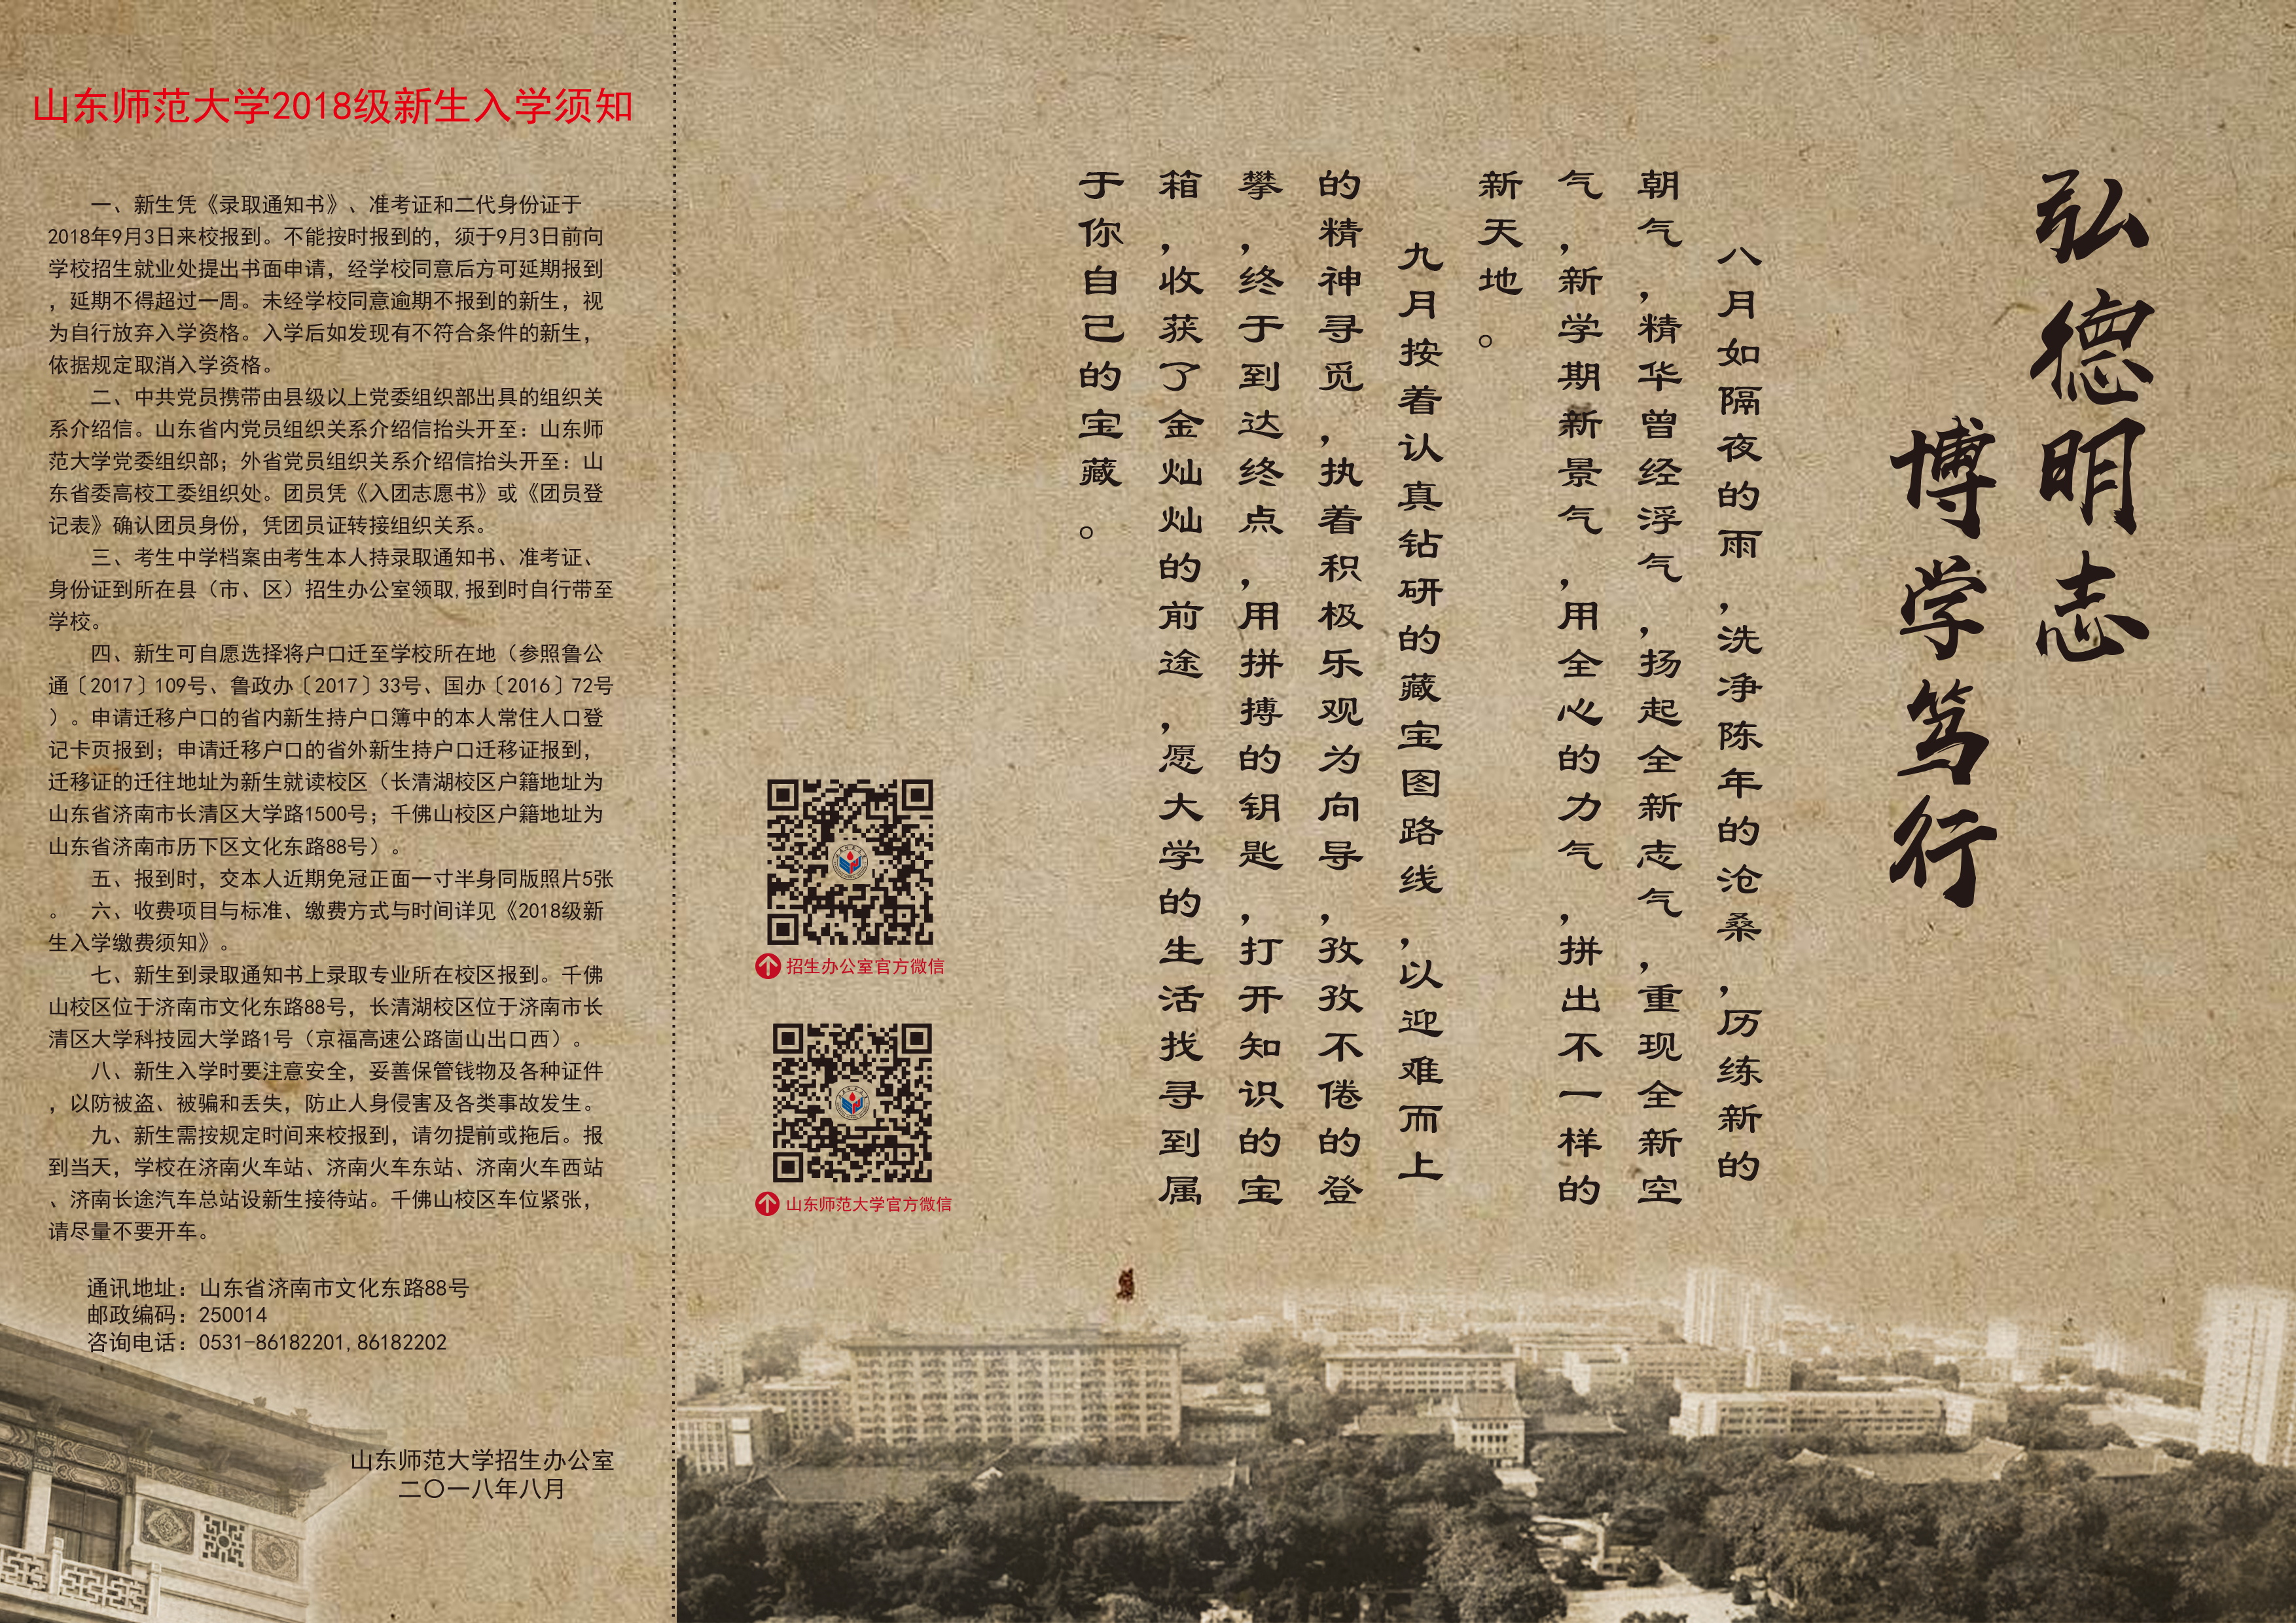 山东师范大学2018级新生入学须知
一、新生凭《录取通知书》、准考证和二代身份证于
2018年9月3日来校报到。不能按时报到的，须于9月3日前向
学校招生就业处提出书面申请，经学校同意后方可延期报到
，延期不得超过一周。未经学校同意逾期不报到的新生，视
为自行放弃入学资格。入学后如发现有不符合条件的新生，
依据规定取消入学资格。
二、中共党员携带由县级以上党委组织部出具的组织关
系介绍信。山东省内党员组织关系介绍信抬头开至：山东师
范大学党委组织部；外省党员组织关系介绍信抬头开至：山
东省委高校工委组织处。团员凭《入团志愿书》或《团员登
记表》确认团员身份，凭团员证转接组织关系。
三、考生中学档案由考生本人持录取通知书、准考证、
身份证到所在县（市、区）招生办公室领取,报到时自行带至
学校。
四、新生可自愿选择将户口迁至学校所在地（参照鲁公
通〔2017〕109号、鲁政办〔2017〕33号、国办〔2016〕72号
）。申请迁移户口的省内新生持户口簿中的本人常住人口登
记卡页报到；申请迁移户口的省外新生持户口迁移证报到，
迁移证的迁往地址为新生就读校区（长清湖校区户籍地址为
山东省济南市长清区大学路1500号；千佛山校区户籍地址为
山东省济南市历下区文化东路88号）。
五、报到时，交本人近期免冠正面一寸半身同版照片5张
。 六、收费项目与标准、缴费方式与时间详见《2018级新
生入学缴费须知》。
七、新生到录取通知书上录取专业所在校区报到。千佛
山校区位于济南市文化东路88号，长清湖校区位于济南市长
清区大学科技园大学路1号（京福高速公路崮山出口西）。
八、新生入学时要注意安全，妥善保管钱物及各种证件
，以防被盗、被骗和丢失，防止人身侵害及各类事故发生。
九、新生需按规定时间来校报到，请勿提前或拖后。报
到当天，学校在济南火车站、济南火车东站、济南火车西站
、济南长途汽车总站设新生接待站。千佛山校区车位紧张，
请尽量不要开车。
通讯地址：山东省济南市文化东路88号
邮政编码：250014
咨询电话：0531-86182201,86182202
山东师范大学招生办公室
二〇一八年八月
弘德明志
博学笃行
八月如隔夜的雨，洗净陈年的沧桑，历练新的
朝气，精华曾经浮气，扬起全新志气，重现全新空
气，新学期新景气，用全心的力气，拼出不一样的
新天地。
九月按着认真钻研的藏宝图路线，以迎难而上
的精神寻觅，执着积极乐观为向导，孜孜不倦的登
攀，终于到达终点，用拼搏的钥匙，打开知识的宝
箱，收获了金灿灿的前途，愿大学的生活找寻到属
于你自己的宝藏。
招生办公室官方微信
山东师范大学官方微信